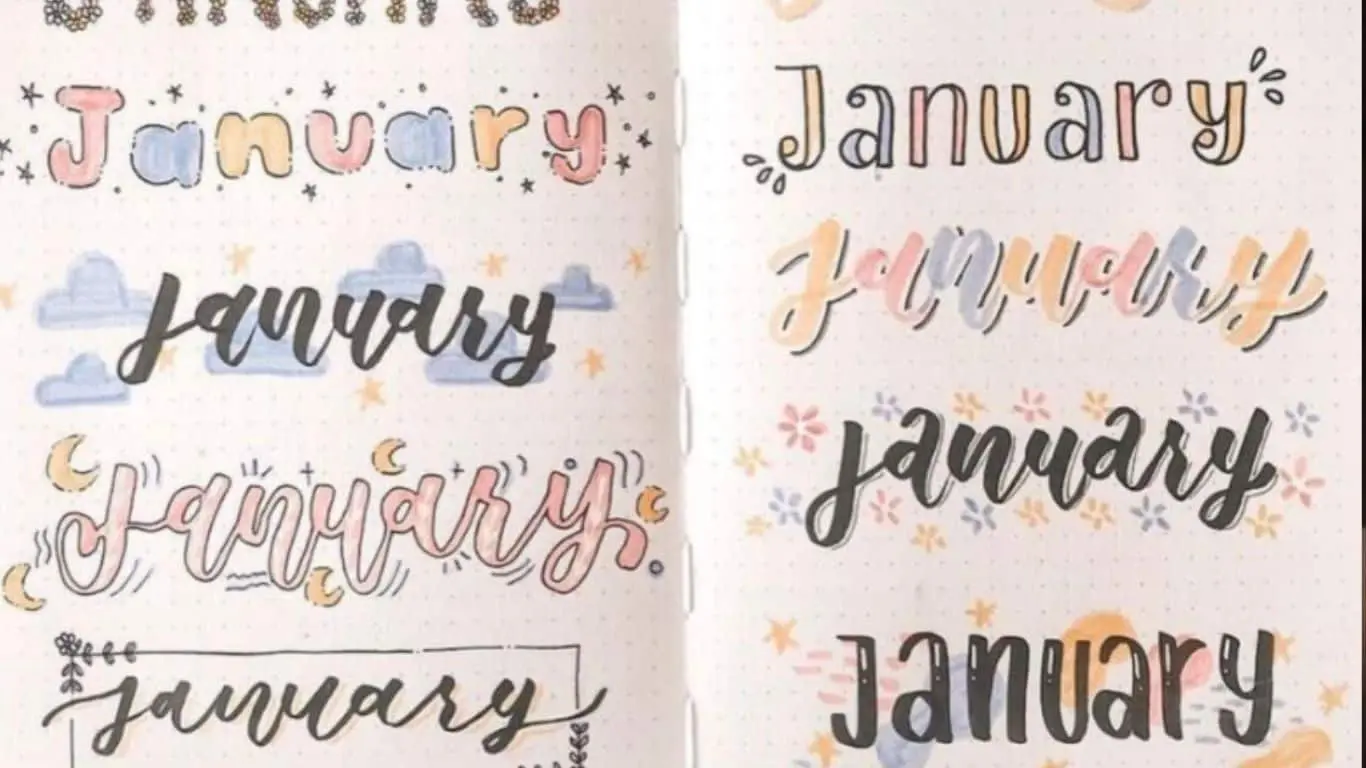 January
january
january
january
January
january
january
January